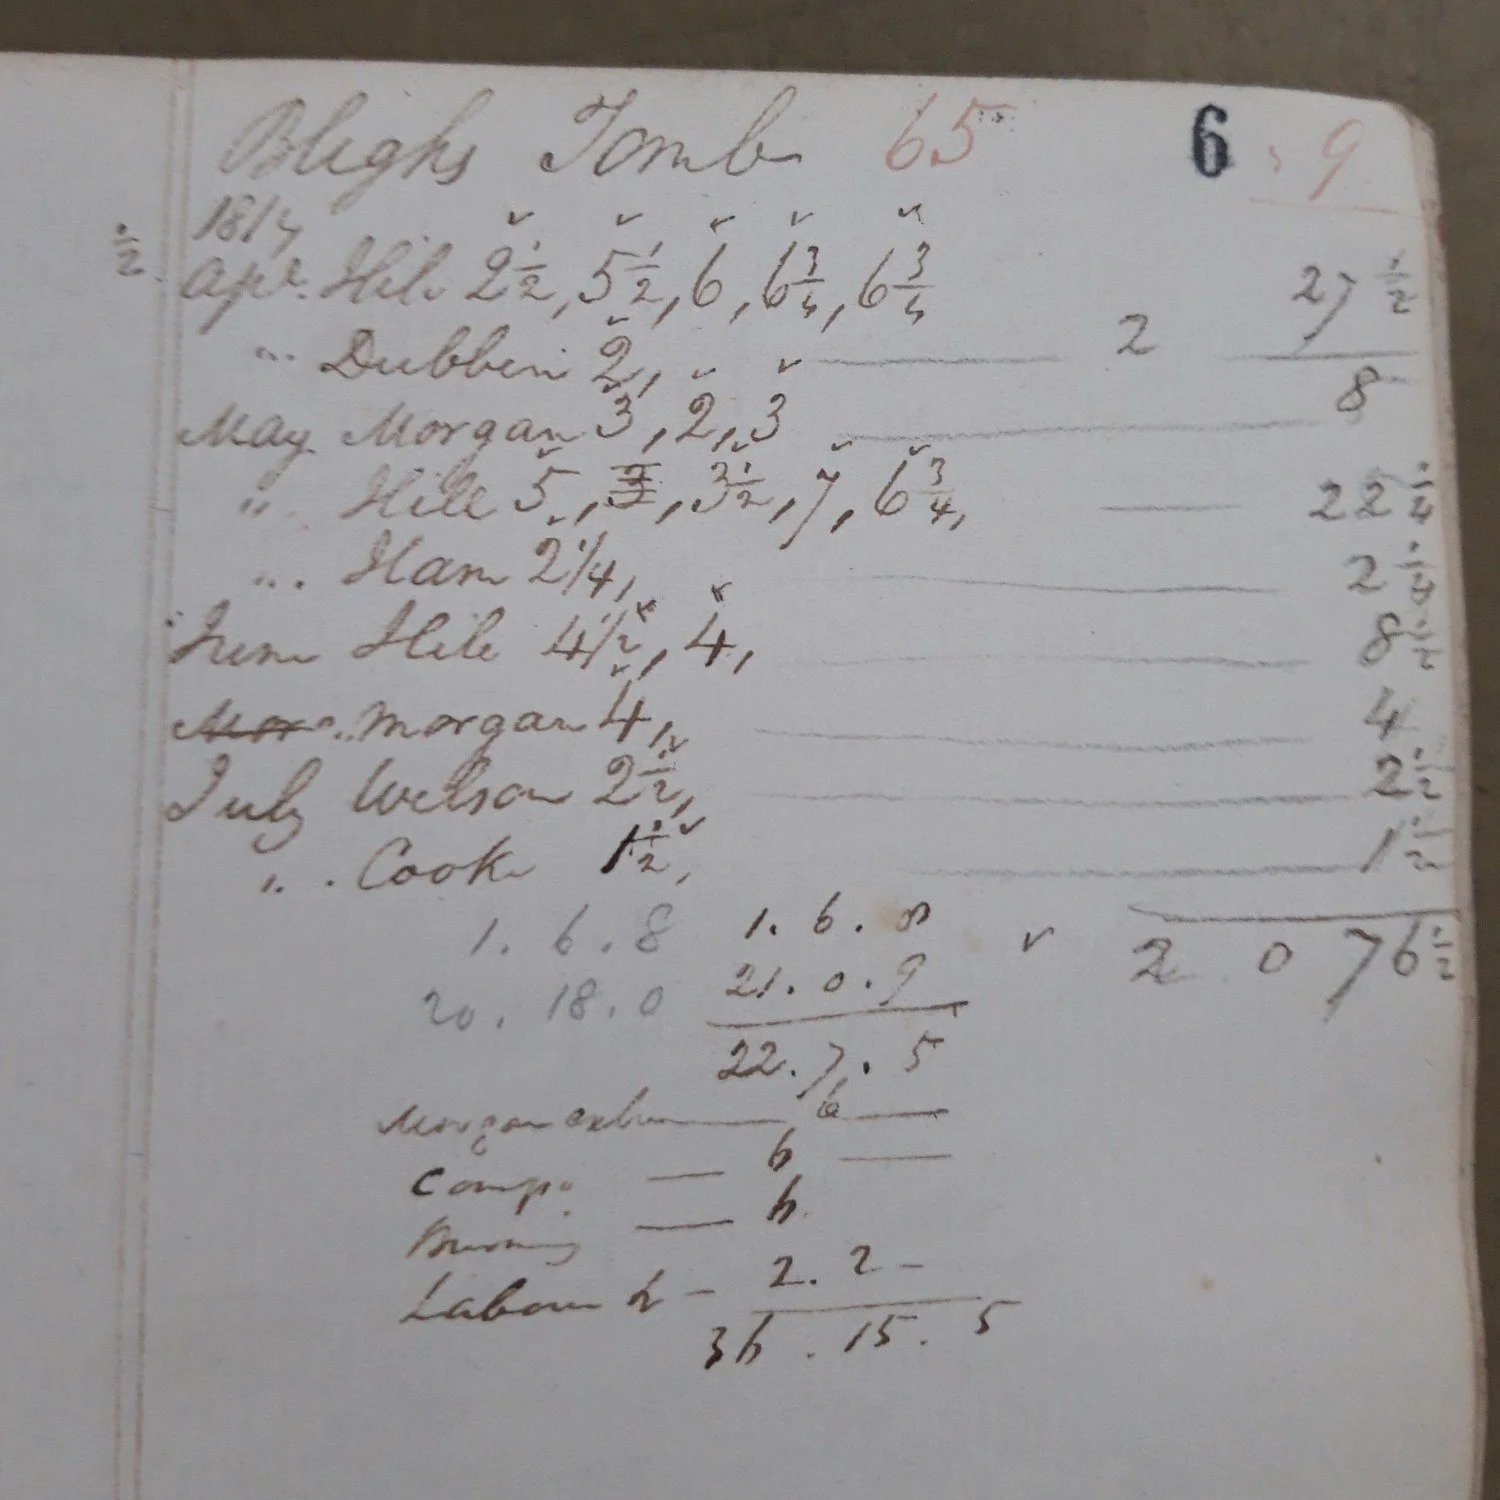 Blighs Tomb 65 6 9
1817
½ Apr. Hile 2½, 5½, 6, 6¾, 6¾ 27½
" Dubbin 2, 2
May Morgan 3, 2, 3 8
" Hile 5, 3, 3½, 7, 6¾, 22¼
" Ham 2¼, 2¼
June Hile 4½, 4, 8½
Mor " Morgan 4, 4
July Welson 2½, 2½
" Cook 1½, 1½
1. 6. 8 1. 6. 8 2 0 76½
20. 18. 0 21. 0. 9
22. 7. 5
Morgan 6
Comp. 6
6
Labour 2. 2
36. 15. 5